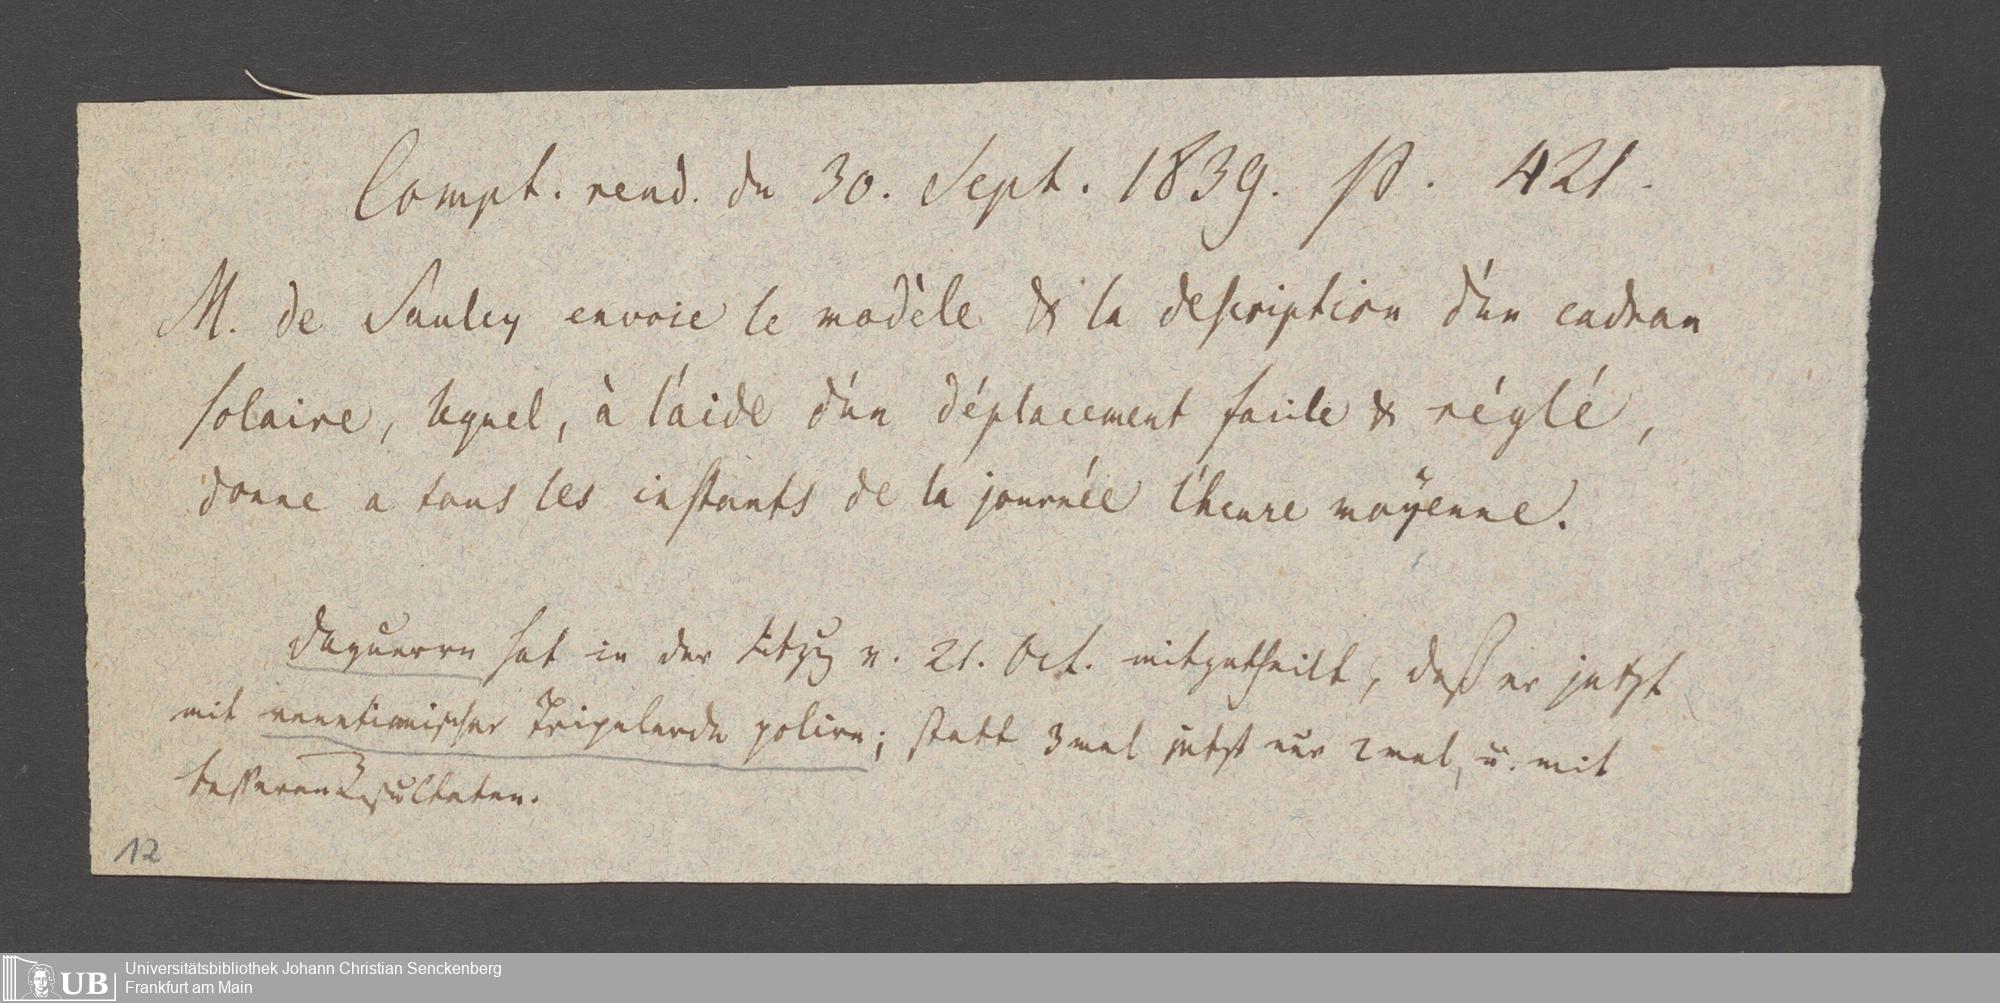 Compt. rend. du 30. Sept. 1839. p. 421.
M. de Saulcy envoie le modèle & la description d'un cadran
solaire, lequel, à l'aide d'un déplacement facile & réglé,
donne a tous les instants de la journée l'heure moÿenne.
Daguerre hat in der Sitzg v. 21. Oct. mitgetheilt, daß er jetzt
mit venetianischer Tripelerde polire; statt 3mal jetzt nur 2mal, u. mit
besseren Resultaten.
12
UB
Universitätsbibliothek Johann Christian Senckenberg
Frankfurt am Main